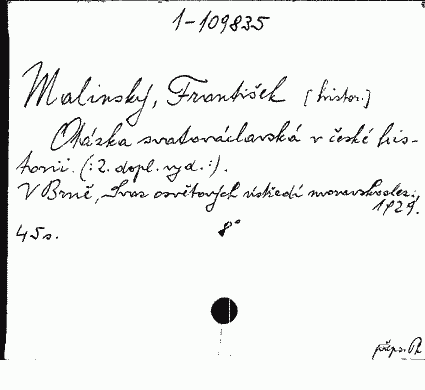 1-109835
Malinský, František [histor.]
Otázka svatováclavská v české his-
torii. (:2. dopl. vyd.:).
V Brně, Svaz osvětových ústředí moravskoslez.,
1929.
45 s. 8°
přeps.